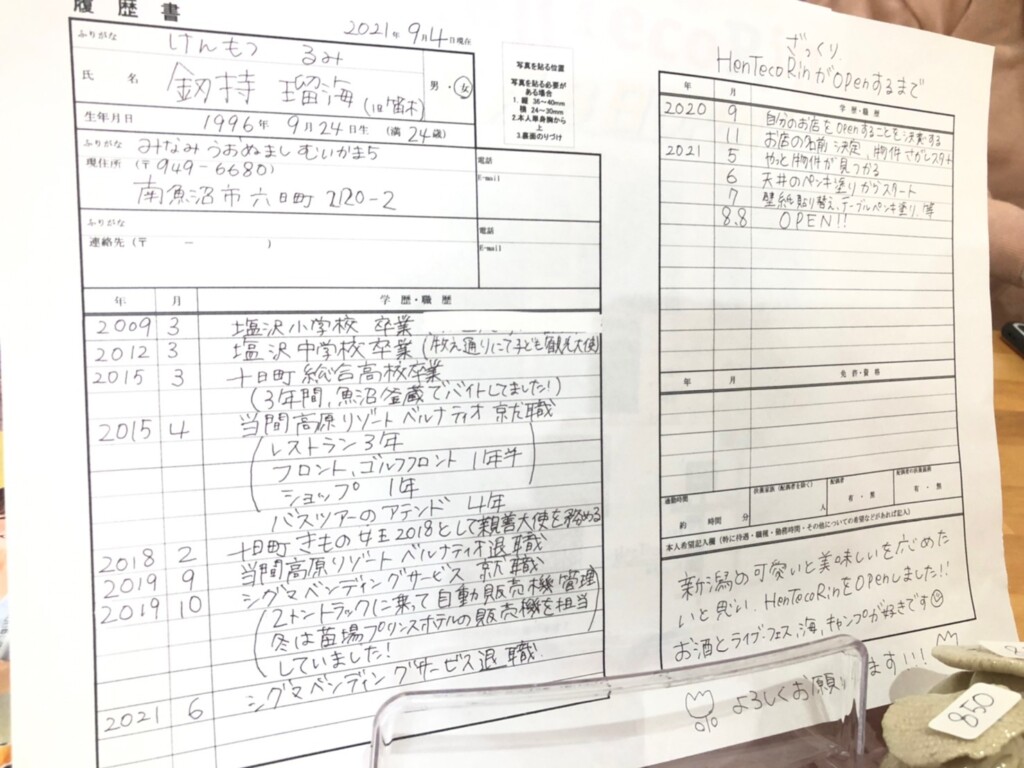 履歴書
2021年 9月4日現在
ふりがな けんもつ るみ
氏名 釼持 瑠海 (旧 笛木)
男・女
生年月日 1996年 9月24日生 (満 24歳)
ふりがな みなみうおぬまし むいかまち
現住所 (〒949-6680)
南魚沼市 六日町 2120-2
電話
E-mail
ふりがな
連絡先 (〒 ー )
電話
E-mail
写真を貼る位置
写真を貼る必要が
ある場合
1. 縦 36~40mm
横 24~30mm
2.本人単身胸から
上
3.裏面のりづけ
年 月 学歴・職歴
2009 3 塩沢小学校 卒業
2012 3 塩沢中学校卒業 (牧之通りにて子ども観光大使)
2015 3 十日町総合高校卒業
(3年間、魚沼釜蔵でバイトしてました!)
2015 4 当間高原リゾート ベルナティオ 就職
レストラン 3年
フロント、ゴルフフロント 1年半
ショップ 1年
バスツアーのアテンド 4年
2018 2 十日町きもの女王2018として親善大使を務める
2019 9 当間高原リゾート ベルナティオ退職
2019 10 シグマベンディングサービス 就職
(2トントラックに乗って自動販売機管理
冬は苗場プリンスホテルの販売機を担当
していました!)
2021 6 シグマベンディングサービス退職
ざっくり
HenTecoRinがOpenするまで
年 月 学歴・職歴
2020 9 自分のお店をOpenすることを決意する
11 お店の名前決定、物件さがしスタート
2021 5 やっと物件が見つかる
6 天井のペンキ塗りからスタート
7 壁紙貼り替え、テーブルペンキ塗り、等
8.8 OPEN!!
年 月 免許・資格
通勤時間
約 時間 分
扶養家族(配偶者を除く)
人
配偶者
有・無
配偶者の扶養義務
有・無
本人希望記入欄(特に待遇・職種・勤務時間・その他についての希望などがあれば記入)
新潟の可愛いと美味しいを広めた
いと思い、HenTecoRinをOpenしました!!
お酒とライブ・フェス、海、キャンプが好きです
よろしくお願い ますいい!
850